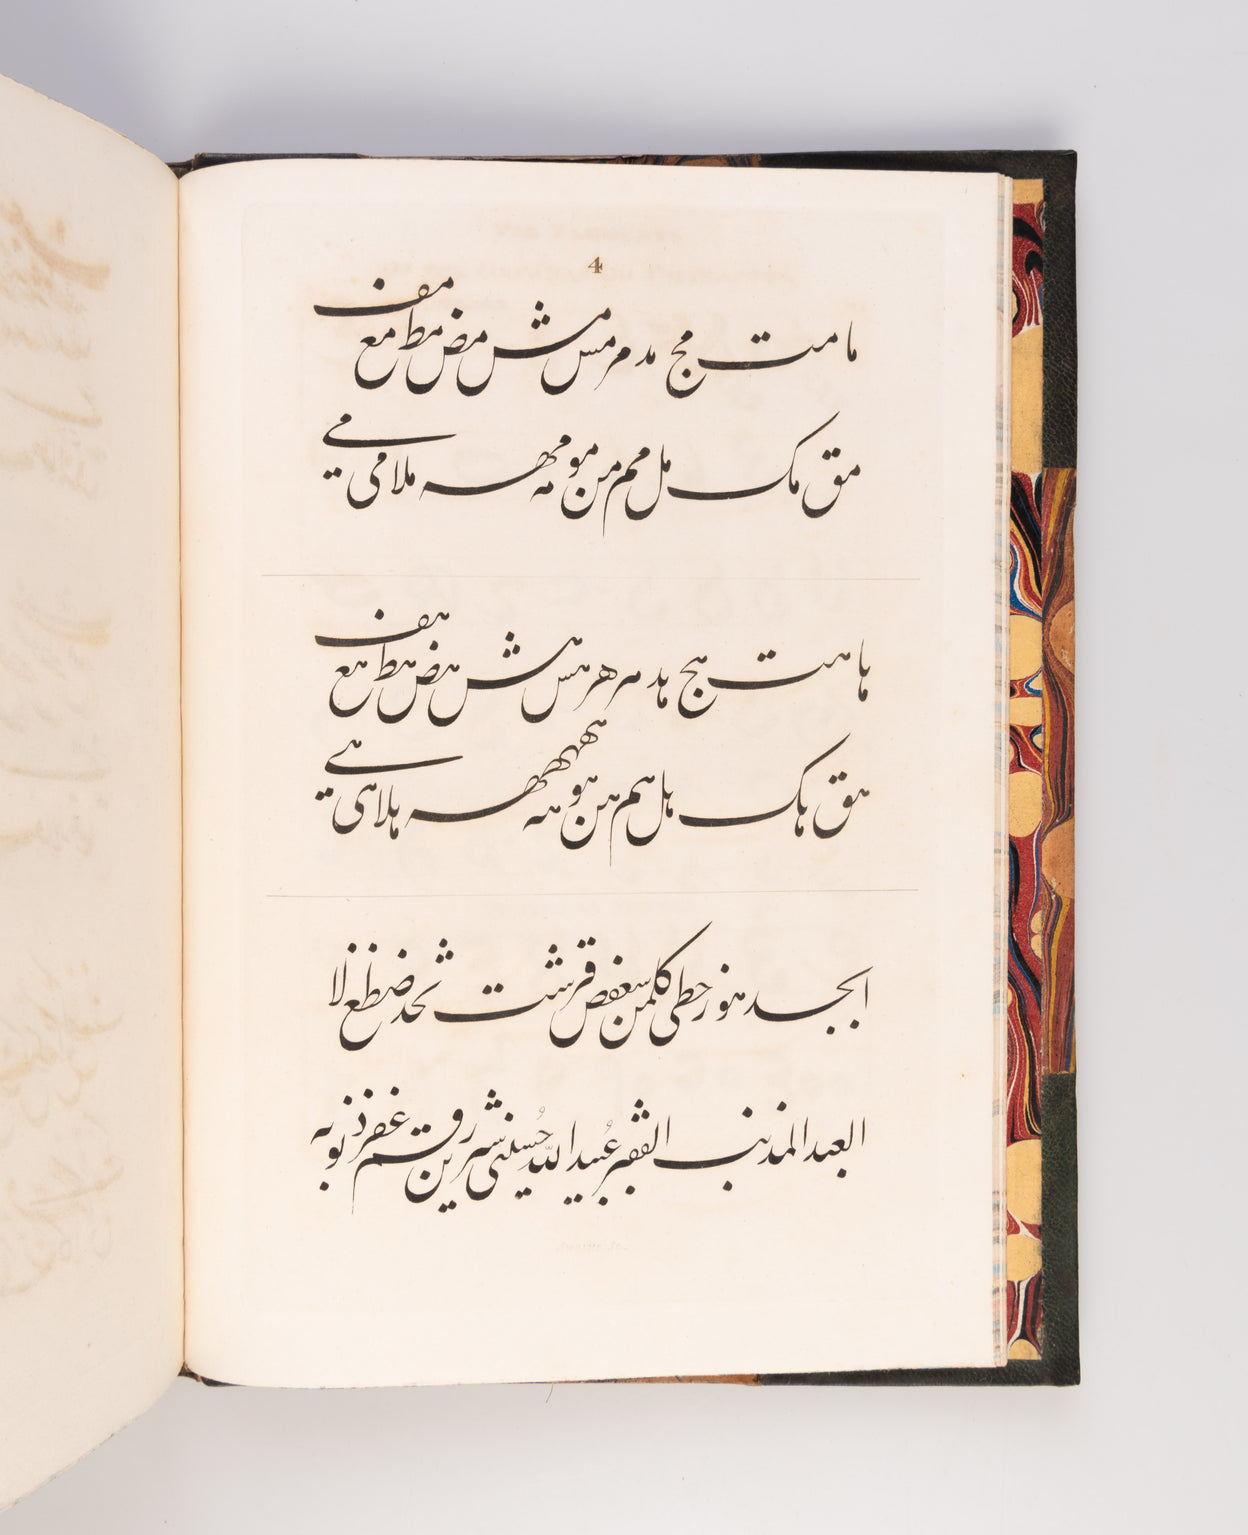 4
ما مت مج مد مر مس مش مض مط مع مف
مق مک مل مم من مو مه مهہ ملا می مے
ها هت هج هد هر هر هس هش هض هط هع هف
هق هک هل هم هن هو هه ههههه هلا هی هے
ابجد هوز حطی کلمن سعفص قرشت ثخذ ضظغ لا
العبد المذنب الفقیر عُبید الله حُسینی شیرین رقم غفر ذنوبه